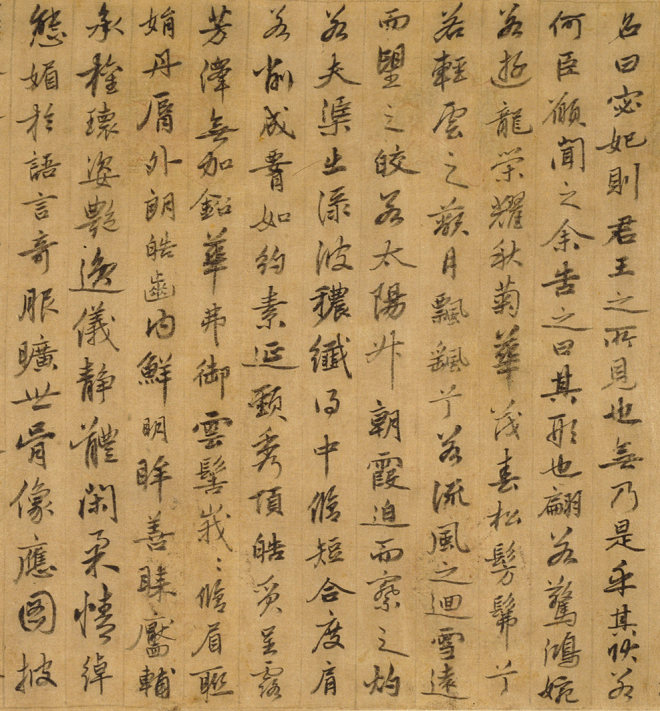 名曰宓妃則君王之所見也無乃是乎其狀若
何臣願聞之余告之曰其形也翩若驚鴻婉
若遊龍榮耀秋菊華茂春松髣髴兮
若輕雲之蔽月飄颻兮若流風之迴雪遠
而望之皎若太陽升朝霞迫而察之灼
若夫渠出淥波穠纖得中脩短合度肩
若削成腰如約素延頸秀項皓質呈露
芳澤無加鉛華弗御雲髻峩〻脩眉聯
娟丹脣外朗皓齒内鮮明眸善睞靨輔
承權瓌姿艷逸儀静體閑柔情綽
態媚於語言奇服曠世骨像應圖披